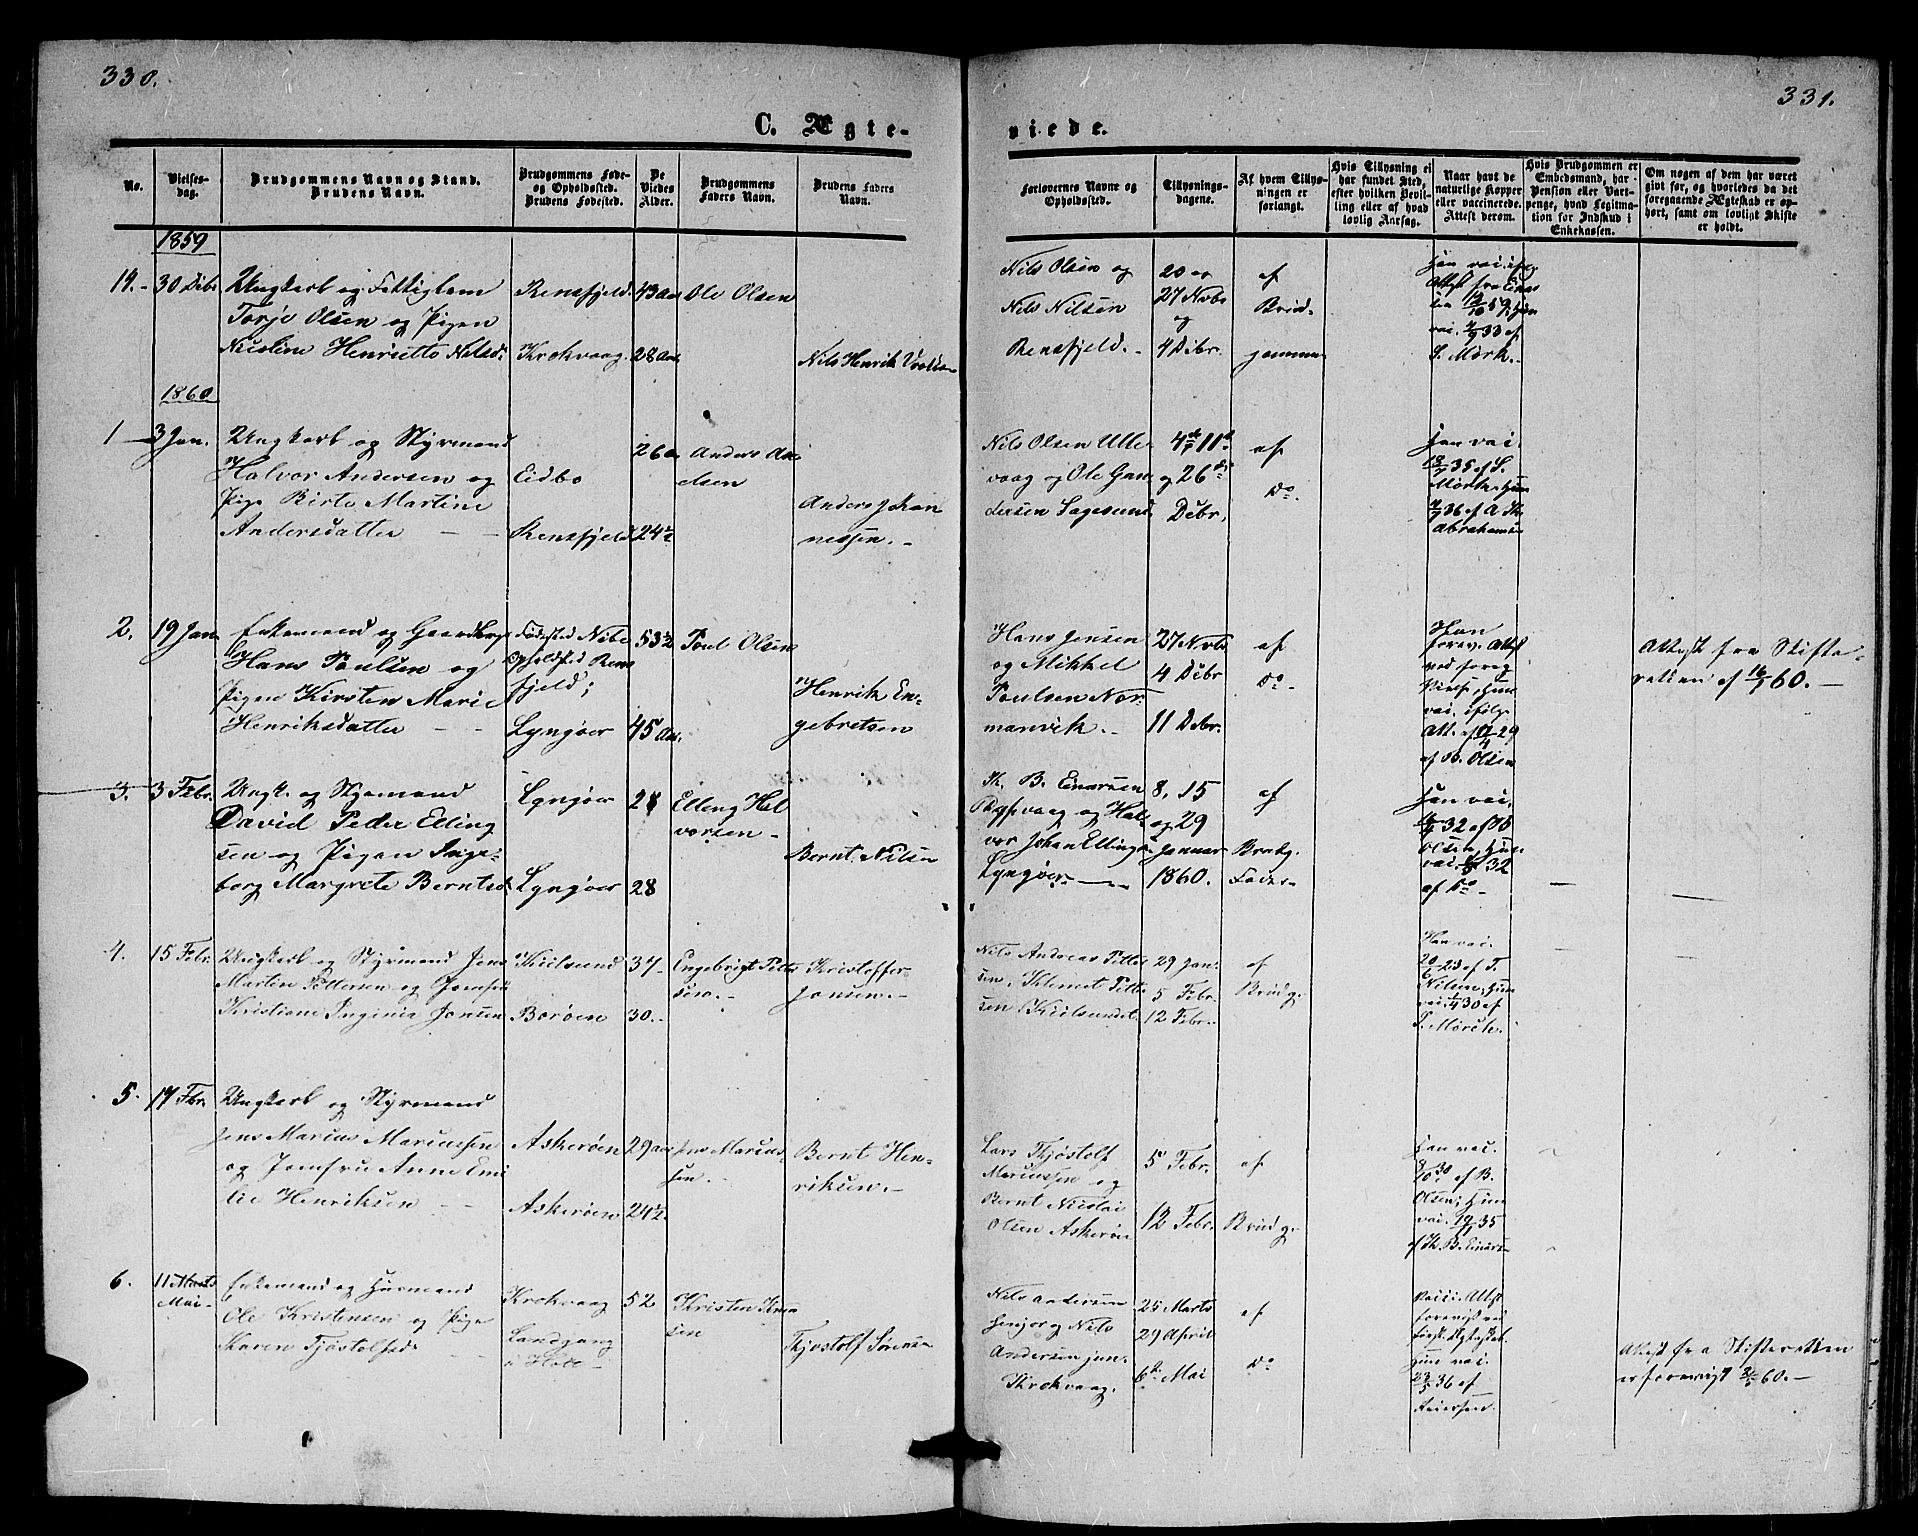 330.
C. Ægte-
No.
Vielses-
dag.
Brudgommens Navn og Stand.
Brudens Navn.
Brudgommens Føde-
og Opholdssted.
Brudens Fødested.
De
Viedes
Alder.
Brudgommens
Faders Navn.
Brudens Faders
Navn.
1859
14. 30 Debr
Ungkarl og
Torje Olsen og Pigen
Henriette Nilsd.
Rensfjeld
Krokvaag.
43 Aar
28 Aar
Ole Olsen
Nils Henrik
1860
1 3 Jan.
Ungkarl og Styrmand
Halvor Andersen og
Pige Birte Martine
Andersdatter
Eidbo
Rensfjeld
26
24½
Anders An
Anders Johan
nessen.
2. 19 Jan
Enkemand og
Hans Poulsen og
Pigen Kirsten Marie
Henriksdatter
Fødested
Opholdsted Rens
fjeld;
Lyngøer
53½
45 Aar.
Poul Olsen
Henrik En-
gebretsen
3. 3 Febr.
Ungk. og Styrmand
David Peder Elling
sen og Pigen Inge-
borg Margrete Berntsd.
Lyngøer
Lyngøer
28
28
Elleng Hal
vorsen
Bernt Nilsen
4. 15 Febr.
Ungkarl og Styrmand Jens
Martin Pettersen og Jomfru
Kristiane Inginia Jonsen
Kiilsund
Borøen
37
30.
Engebrigt Petter
sen.
Kristoffer
Jonsen.
5. 17 Fbr.
Ungkarl og Styrmand
Jens Marius Mariussen
og Jomfru Anne Emi
lie Henriksen
Askerøen
Askerøen
29 Aar
24½
Jens Marius-
sen.
Bernt Hen-
riksen.
6. 11
Mai
Enkemand og Huusmand
Ole Kristensen og Pige
Karen Tjøstolfsd.
Krokvaag
Landgang
i Holt
52
Kristen
sen
Tjøstolf Sørensen
331.
viede.
Forlovernes Navne og
Opholdssted.
Tillysnings-
dagene.
Af hvem Tillys-
ningen er
forlangt.
Hvis Tillysning ei
har fundet Sted,
efter hvilken Bevil-
ling eller af hvad
lovlig Aarsag.
Naar havt de
naturlige Kopper
eller vaccinerede.
Attest derom.
Hvis Brudgommen er
Embedsmand, har
Pension eller Vart-
penge, hvad Legitima-
tion for Indskud i
Enkekassen.
Om nogen af dem har været
gift før, og hvorledes da det
foregaaende Ægteskab er op-
hørt, samt om lovligt Skifte
er holdt.
Nils Olsen og
Nils Nilsen
Rensfjeld.
20 og
27 Novbr
og
4 Debr.
af
Brud-
gommen
Han vac. ifølge
Attest fra
S. Mørk.
Nils Olsen Ulle
vaag og Ole Gun
dersen Sagesund
4de, 11te
og 26de
Debr.
af
Do.
Han vac.
35 af S.
Mørk, Hun
36 af A.
Abrahamsen
Hans Jensen
og Mikkel
Poulsen Nor-
manvik.
27 Novbr
4 Debr
11 Debr.
af
Do
Han
forev. Attest
ved foreg
Vielse, Hun
vac. ifølge
Att. af 29
af B. Olsen
Attest fra Skifte-
retten af 16/1 60.
Th. B. Einersen
Dypvaag og Hal-
vor Johan Ellingsen
Lyngøer
8, 15
og 29
Januar
1860.
af
Brudg.
Fader
Han vac.
32 af B
Olsen, Hun
vac. 32
af Do
Nils Andreas Petter
sen, Klemet Pette
sen Kiilsundet.
29 Jan.
5 Febr.
12 Febr.
af
Brudg.
Han vac.
20/6 23 af T.
Nilsen, Hun
vac. 30 af
S. Mørch.
Lars Tjøstolf
Mariussen og
Bernt Nicolai
Olsen Askerøen
5 Febr.
12 Febr.
af
Brudg.
Han vac.
8/10 30 af B.
Olsen, Hun
vac. 35
af Th. B. Einers
Nils Andersen
og Nils
Andersen jun.
Krokvaag.
25 Marts
29 April
6te Mai
af
Do
Vacc. Attst
forevist ved
første Ægteskab.
Hun vac.
23/5 36 af
Attest fra Skifteretten
er forevist 60.